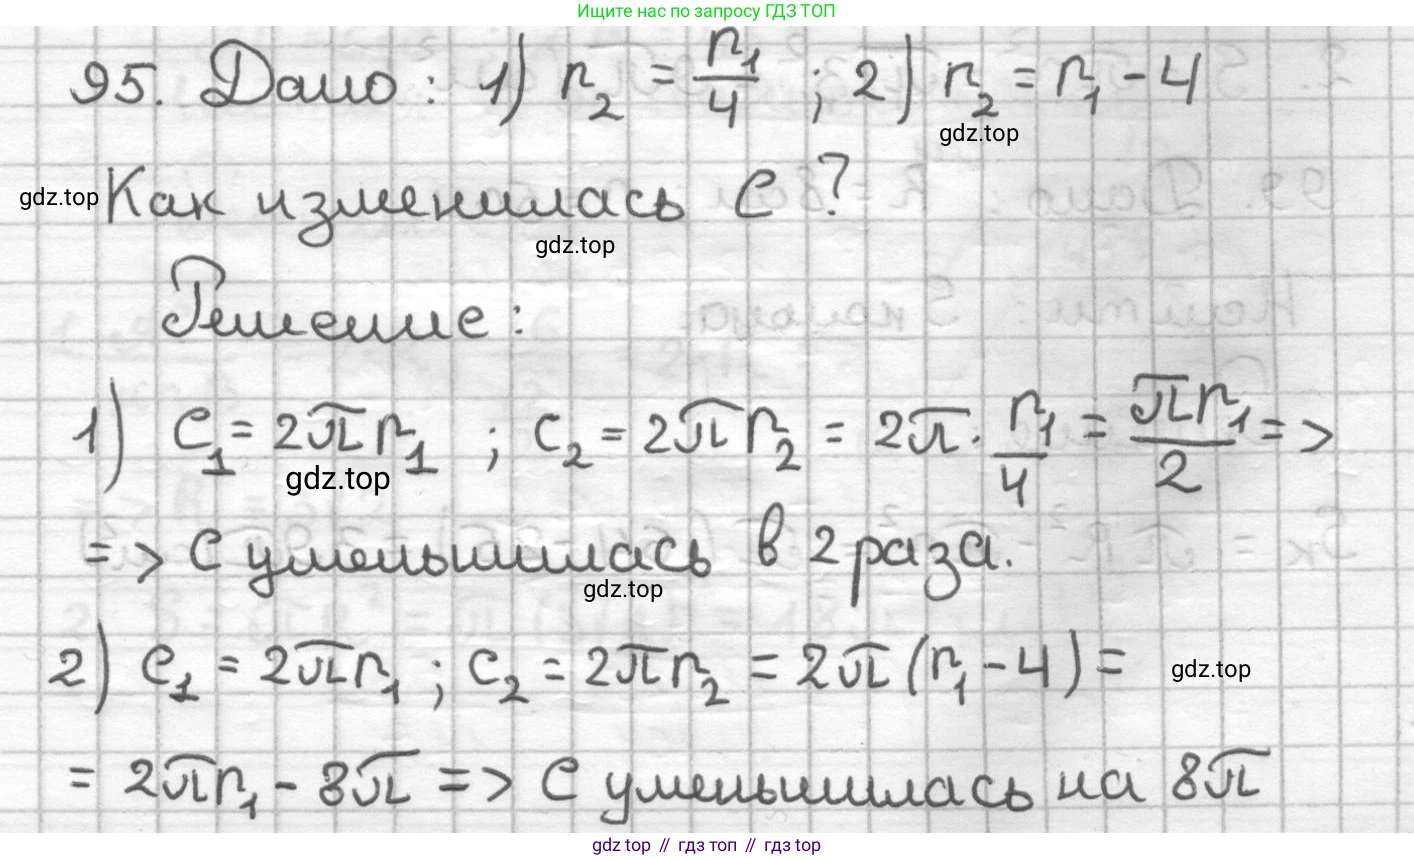 Ищите нас по запросу ГДЗ ТОП
95. Дано: 1) r₂ = r₁/4 ; 2) r₂ = r₁ - 4
gdz.top
gdz.top Как изменилась C?
gdz.top
Решение:
1) C₁ = 2πr₁ ; C₂ = 2πr₂ = 2π · r₁/4 = πr₁/2 =>
gdz.top
=> C уменьшилась в 2 раза.
gdz.top
2) C₁ = 2πr₁ ; C₂ = 2πr₂ = 2π(r₁ - 4) = gdz.top
= 2πr₁ - 8π => C уменьшилась на 8π
gdz.top // гдз топ // gdz.top